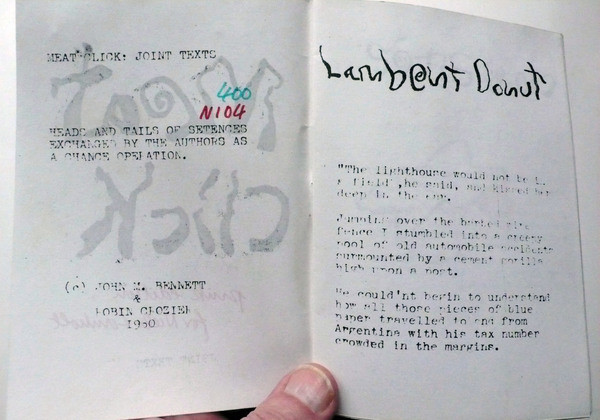 MEAT CLICK: JOINT TEXTS
400
N104
HEADS AND TAILS OF SETENCES
EXCHANGED BY THE AUTHORS AS
A CHANCE OPERATION.
(c) JOHN M. BENNETT
&
ROBIN CROZIER
1980
Lambent Donut
"The lighthouse would not be in
a field", he said, and kissed her
deep in the ear.
Jumping over the barbed wire
fence I stumbled into a creepy
pool of old automobile accidents
surmounted by a cement gorilla
high upon a post.
He could'nt begin to understand
how all those pieces of blue
paper travelled to and from
Argentina with his tax number
crowded in the margins.